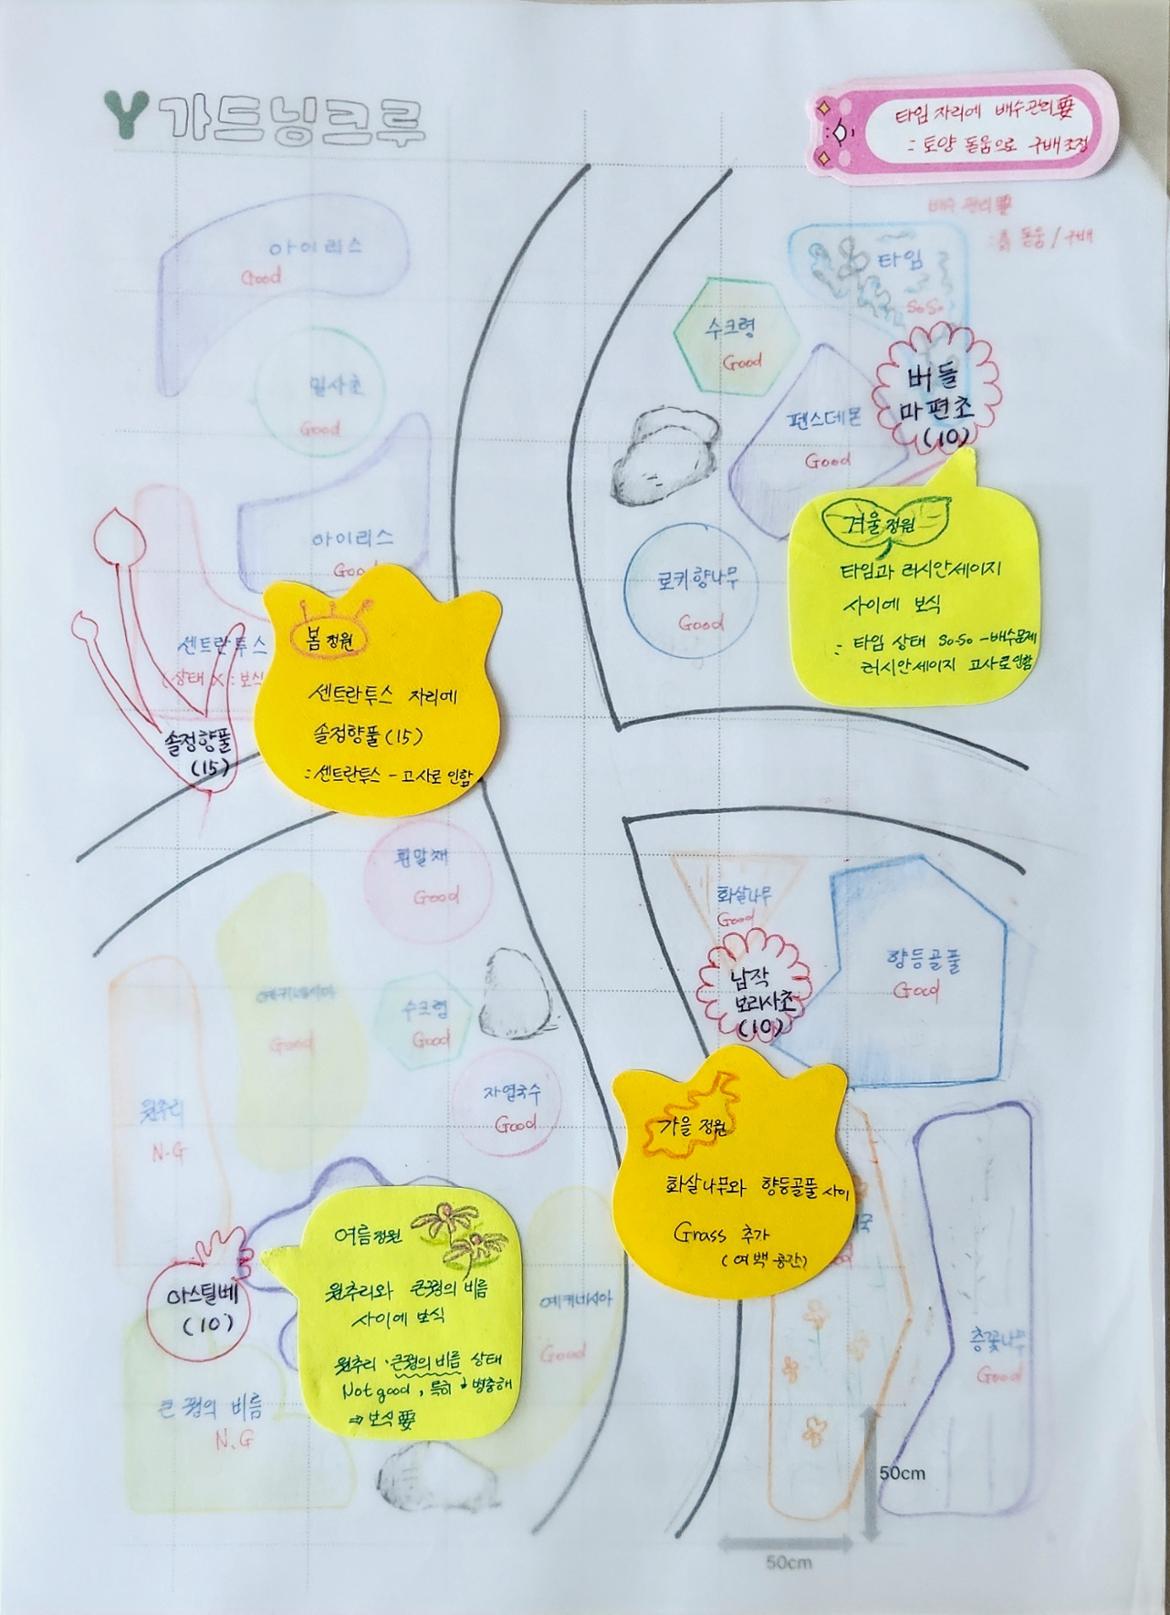 가드닝크루
타임 자리에 배수관리要
: 토양 돋움으로 구배 조정
배수 관리要
: 흙 돋움 / 구배
아이리스
Good
타임
SoSo
수크령
Good
밀사초
Good
버들
마편초
(10)
펜스데몬
Good
아이리스
Good
겨울정원
타임과 러시안세이지
사이에 보식
: 타임 상태 So-So - 배수문제
러시안세이지 고사로 인함
로키향나무
Good
센트란투스
(상태 X : 보식
솔정향풀
(15)
봄 정원
센트란투스 자리에
솔정향풀(15)
: 센트란투스 - 고사로 인함
휜말채
Good
화살나무
Good
향등골풀
Good
에키네시아
Good
수크령
Good
납작
보리사초
(10)
자엽국수
Good
원추리
N.G
가을 정원
화살나무와 향등골풀 사이
Grass 추가
(여백 공간)
여름정원
원추리와 큰꿩의 비름
사이에 보식
원추리·큰꿩의 비름 상태
Not good, 특히 병충해
⇒ 보식要
아스틸베
(10)
에키네시아
Good
층꽃나무
Good
큰 꿩의 비름
N.G
50cm
50cm